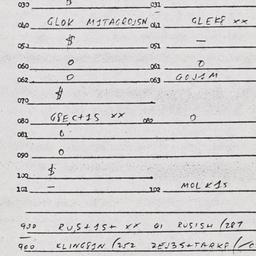 030 031
040 GLOK M1TAGROJSN 041 GLEKE xx
052 $ 051 —
060 0 061 0
062 0 063 GOJ1M
070 $
080 GSEC+1S xx 0
081 0
090 0
100 $
101 — 102 MOLK1S
930 RUS+1S+ xx 01 RUSISH /287
960 KLINGSIN /252